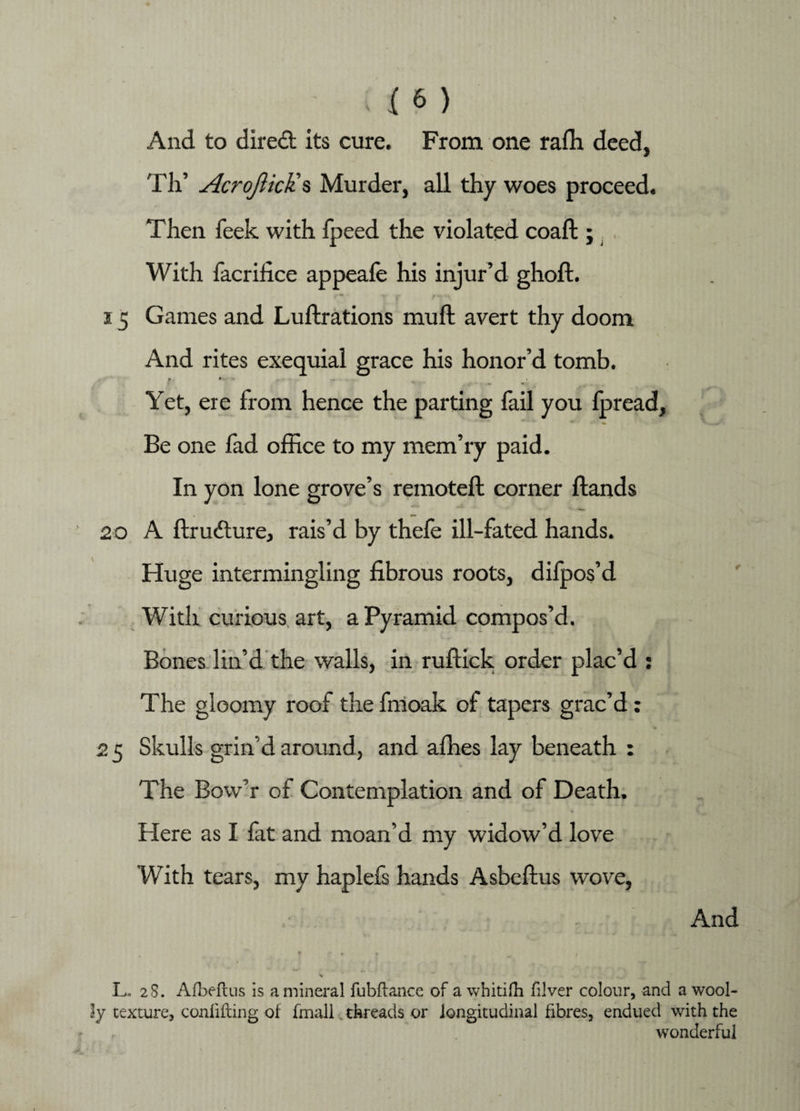 ( 6 )
And to direct its cure. From one raſh deed,
Th' Acroſtick's Murder, all thy woes proceed.
Then ſeek with ſpeed the violated coaſt ;
With ſacrifice appeaſe his injur'd ghoſt.
15 Games and Luſtrations muſt avert thy doom
And rites exequial grace his honor'd tomb.
Yet, ere from hence the parting ſail you ſpread,
Be one ſad office to my mem'ry paid.
In yon lone grove's remoteſt corner ſtands
20 A ſtructure, rais'd by theſe ill-fated hands.
Huge intermingling fibrous roots, diſpos'd
With curious art, a Pyramid compos'd.
Bones lin'd the walls, in ruſtick order plac'd :
The gloomy roof the ſmoak of tapers grac'd :
25 Skulls grin'd around, and aſhes lay beneath :
The Bow'r of Contemplation and of Death.
Here as I ſat and moan'd my widow'd love
With tears, my hapleſs hands Asbeſtus wove,
And
L. 28. Aſbeſtus is a mineral ſubſtance of a whitiſh ſilver colour, and a wool-
ly texture, conſiſting of ſmall threads or longitudinal fibres, endued with the
wonderful